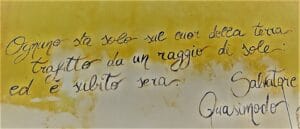 Ognuno sta solo sul cuor della terra
trafitto da un raggio di sole:
ed è subito sera.
Salvatore
Quasimodo